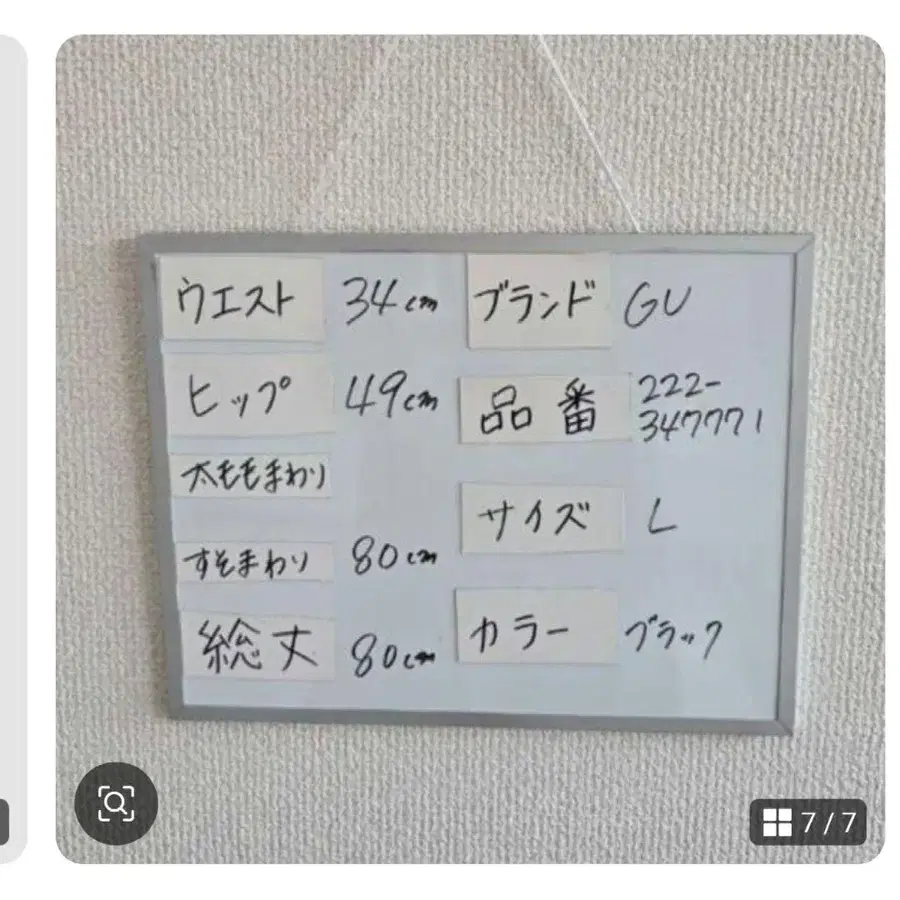 ウエスト 34cm
ヒップ 49cm
太ももまわり
すそまわり 80cm
総丈 80cm
ブランド GU
品番 222-
347771
サイズ L
カラー ブラック
7/7